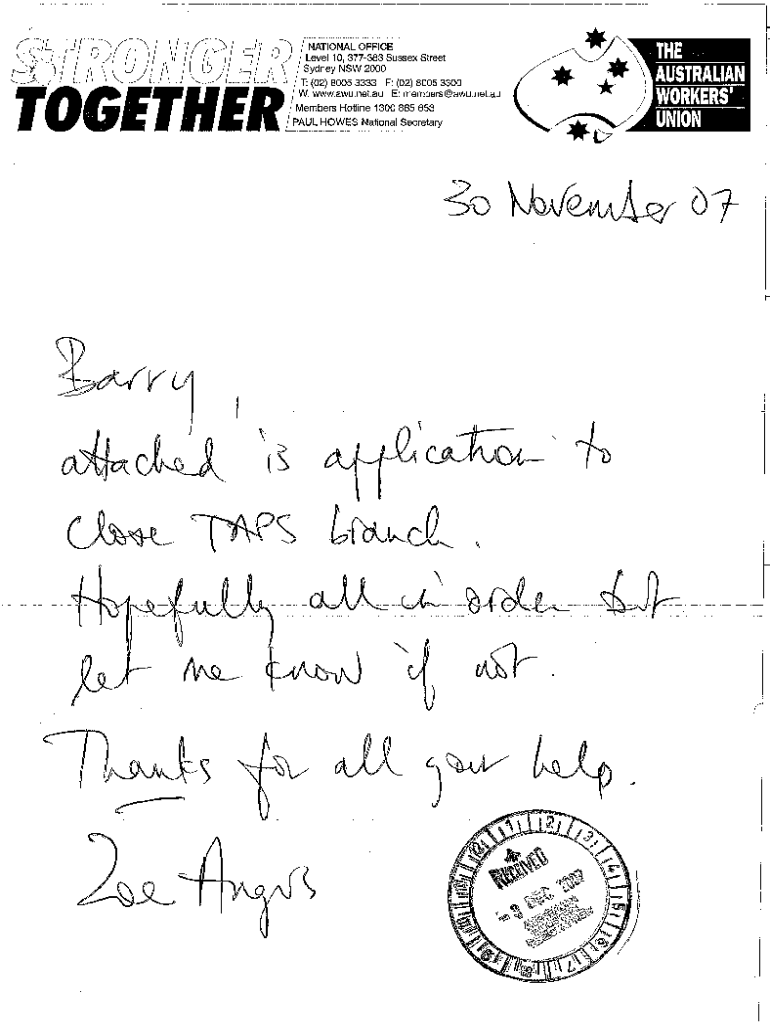 STRONGER
TOGETHER
NATIONAL OFFICE
Level 10, 377-383 Sussex Street
Sydney NSW 2000
T: (02) 8005 3333 F: (02) 8005 3300
W: www.awu.net.au E: members@awu.net.au
Members Hotline 1300 885 653
PAUL HOWES National Secretary
THE
AUSTRALIAN
WORKERS'
UNION
30 November 07
Barry,
attached is application to
close TAPS branch.
Hopefully all in order but
let me know if not.
Thanks for all your help.
Zoe Angus
RECEIVED
- 3 DEC 2007
1 2 3 4 5 6 7 8